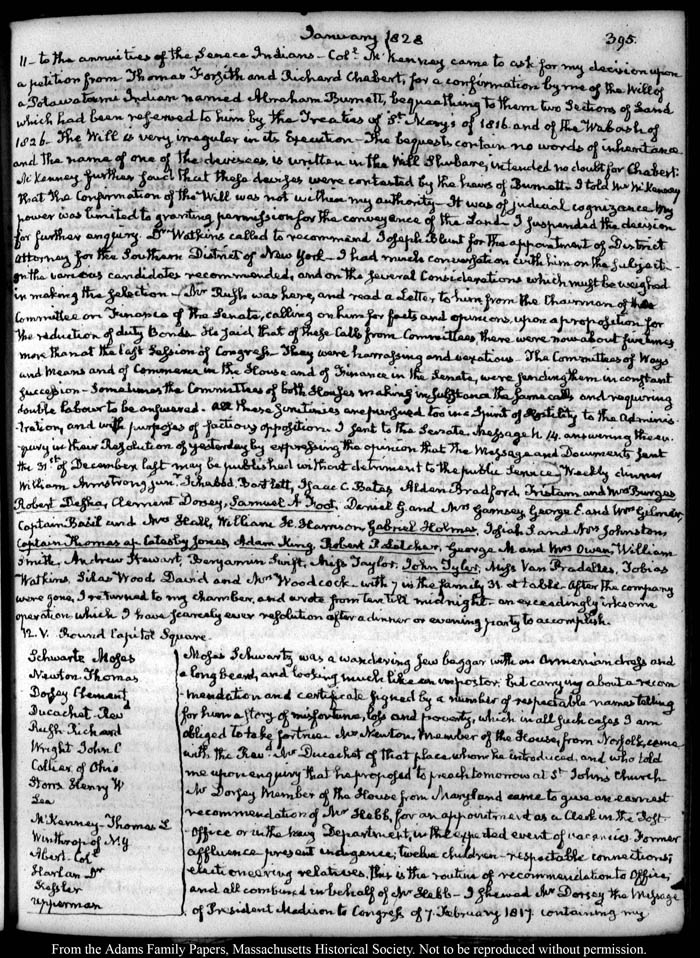 January 1828
395.
11 – to the annuities of the Seneca Indians – Coll. McKenney came to ask for my decision upon
a petition from Thomas Forsith and Richard Chabert, for a confirmation by me of the Will of
a Potawatamie Indian named Abraham Burnett, bequeathing to them two Sections of Land
which had been reserved to him by the Treaties of St. Mary's of 1818 and of the Wabash of
1826. The Will is very irregular in its Execution – The bequests contain no words of inheritance
and the name of one of the devisees, is written in the Will Shubare, intended no doubt for Chabert.
McKenney further said that these devises were contested by the heirs of Burnett. I told Mr. McKenney
that the Confirmation of the Will was not within my authority – It was of judicial cognizance. My
power was limited to granting permission for the conveyance of the Land – I suspended the decision
for further enquiry. Dr. Watkins called to recommend Joseph Blunt for the appointment of District
Attorney for the Southern District of New York – I had much conversation with him on the subject –
on the various candidates recommended, and on the several Considerations which must be weighed
in making the selection – Mr Rush was here, and read a Letter to him from the Chairman of the
Committee on Finance of the Senate, calling on him for facts and opinions, upon a proposition for
the reduction of duty Bonds. He said that of these Calls from Committees there were now about five times
more than at the last Session of Congress. They were harrassing and vexatious. The Committees of Ways
and Means and of Commerce in the House and of Finance in the Senate, were sending them in constant
succession – Sometimes the Committees of both Houses making in substance the same calls and requiring
double labour to be answered. All these scrutinies are pursued too in a Spirit of Hostility to the Adminis-
tration, and with purposes of factious opposition. I sent to the Senate, Message N. 14. answering the en-
quiry in their Resolution of yesterday by expressing the opinion that the Message and Documents sent
the 31st. of December last may be published without detriment to the public Service. Weekly dinner
William Armstrong junr. Ichabod Bartlett, Isaac C. Bates, Alden Bradford, Tristam and Mrs Burges
Robert Desha, Clement Dorsey, Samuel A Foot, Daniel G. and Mrs Garnsey, George E. and Mrs Gilmer,
Captain Basil and Mrs Hall, William H. Harrison, Gabriel Holmes, Josiah S and Mrs Johnston
Captain Thomas ap Catesby Jones, Adam King, Robert P. Letcher, George M. and Mrs Owen, William
Smith, Andrew Stewart, Benjamin Swift, Miss Taylor, John Tyler, Miss Van Pradelles, Tobias
Watkins, Silas Wood, David and Mrs Woodcock – with 7 in the family 31 at table. After the company
were gone, I returned to my chamber, and wrote from ten till midnight – an exceedingly irksome
operation which I have scarcely ever resolution after a dinner or evening party to accomplish.
12. V. Round Capitol Square.
Schwartz Moses
Newton Thomas
Dorsey Clement
Ducachet – Revd
Rush Richard
Wright John C
Collier of Ohio
Storrs Henry W
Lea
McKenney – Thomas L
Winthrop of N.Y
Abert – Coll
Harlan Dr
Kessler
Upperman
Moses Schwartz, was a wandering Jew beggar with an Armenian dress and
a long beard, and looking much like an impostor, but carrying about a recom-
mendation and certificate signed by a number of respectable names telling
for him a story of misfortune, loss and poverty, which in all such cases I am
obliged to take for true. Mr Newton, Member of the House, from Norfolk, came
with the Revd. Mr Ducachet of that place whom he introduced, and who told
me upon enquiry that he proposed to preach tomorrow at St. John's Church
Mr Dorsey Member of the House from Maryland came to give an earnest
recommendation of Mr Hebb, for an appointment as a Clerk in the Post-
Office or in the Navy Department, in the expected event of vacancies. Former
affluence, present indigence, twelve children – respectable connections;
electioneering relatives, this is the routine of recommendation to Office;
and all combined in behalf of Mr Hebb – I shewed Mr Dorsey the Message
of President Madison to Congress of 7. February 1817. containing my
From the Adams Family Papers, Massachusetts Historical Society. Not to be reproduced without permission.